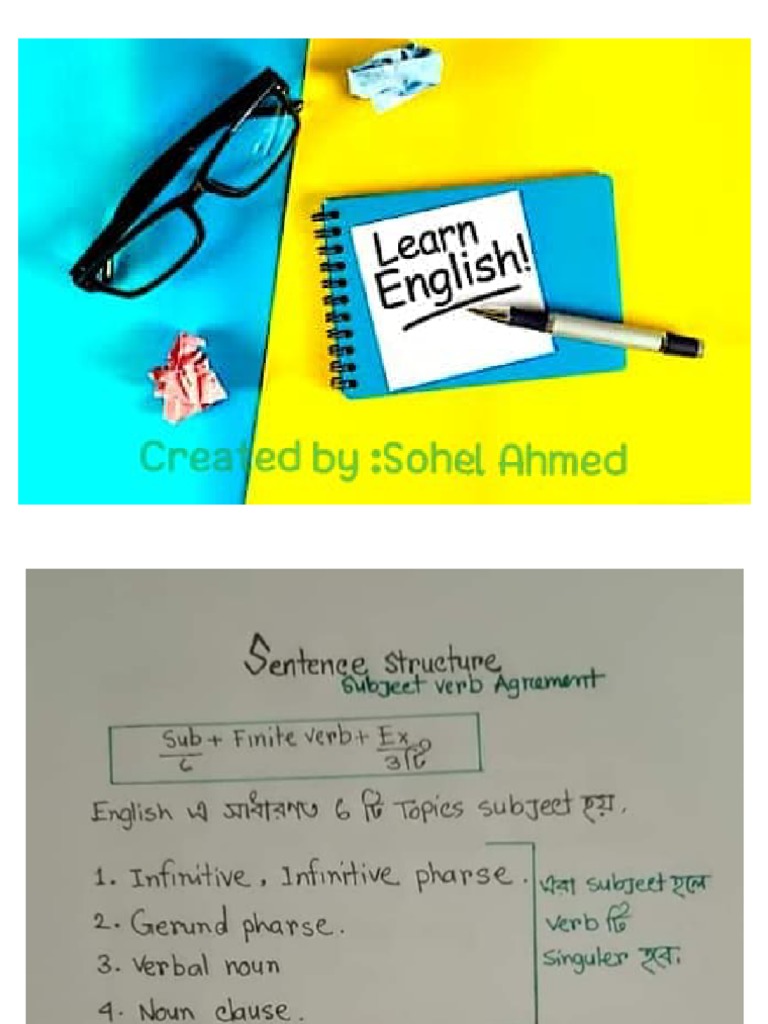 Learn
English!
Created by :Sohel Ahmed
Sentence Structure
Subjeet verb Agrament
Sub + Finite verb + Ex
৬ 3টি
English এ সাধারণত ৬ টি Topics subject হয়.
1. Infinitive, Infinitive pharse.
2. Gerund pharse.
3. Verbal noun
4. Noun clause.
এরা subject হলে
verb টি
Singuler হবে.